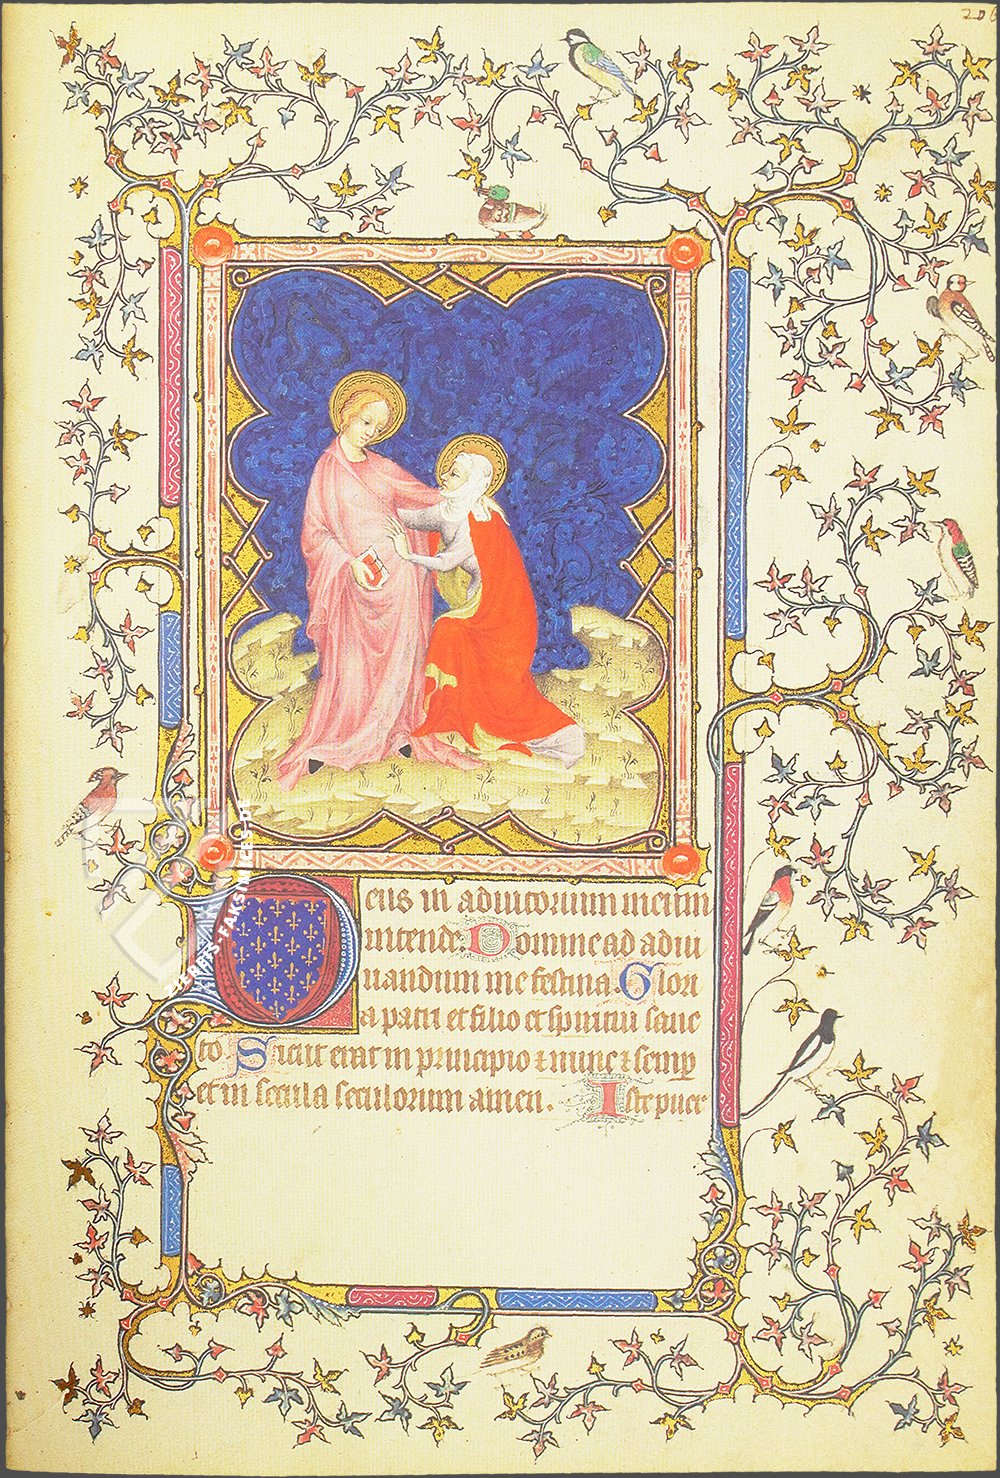 206
Deus in adiutorium meum
intende Domine ad adiu
uandum me festina Glori
a patri et filio et spiritui sanc
to Sicut erat in principio et nunc et semp
et in secula seculorum amen. Iste puer